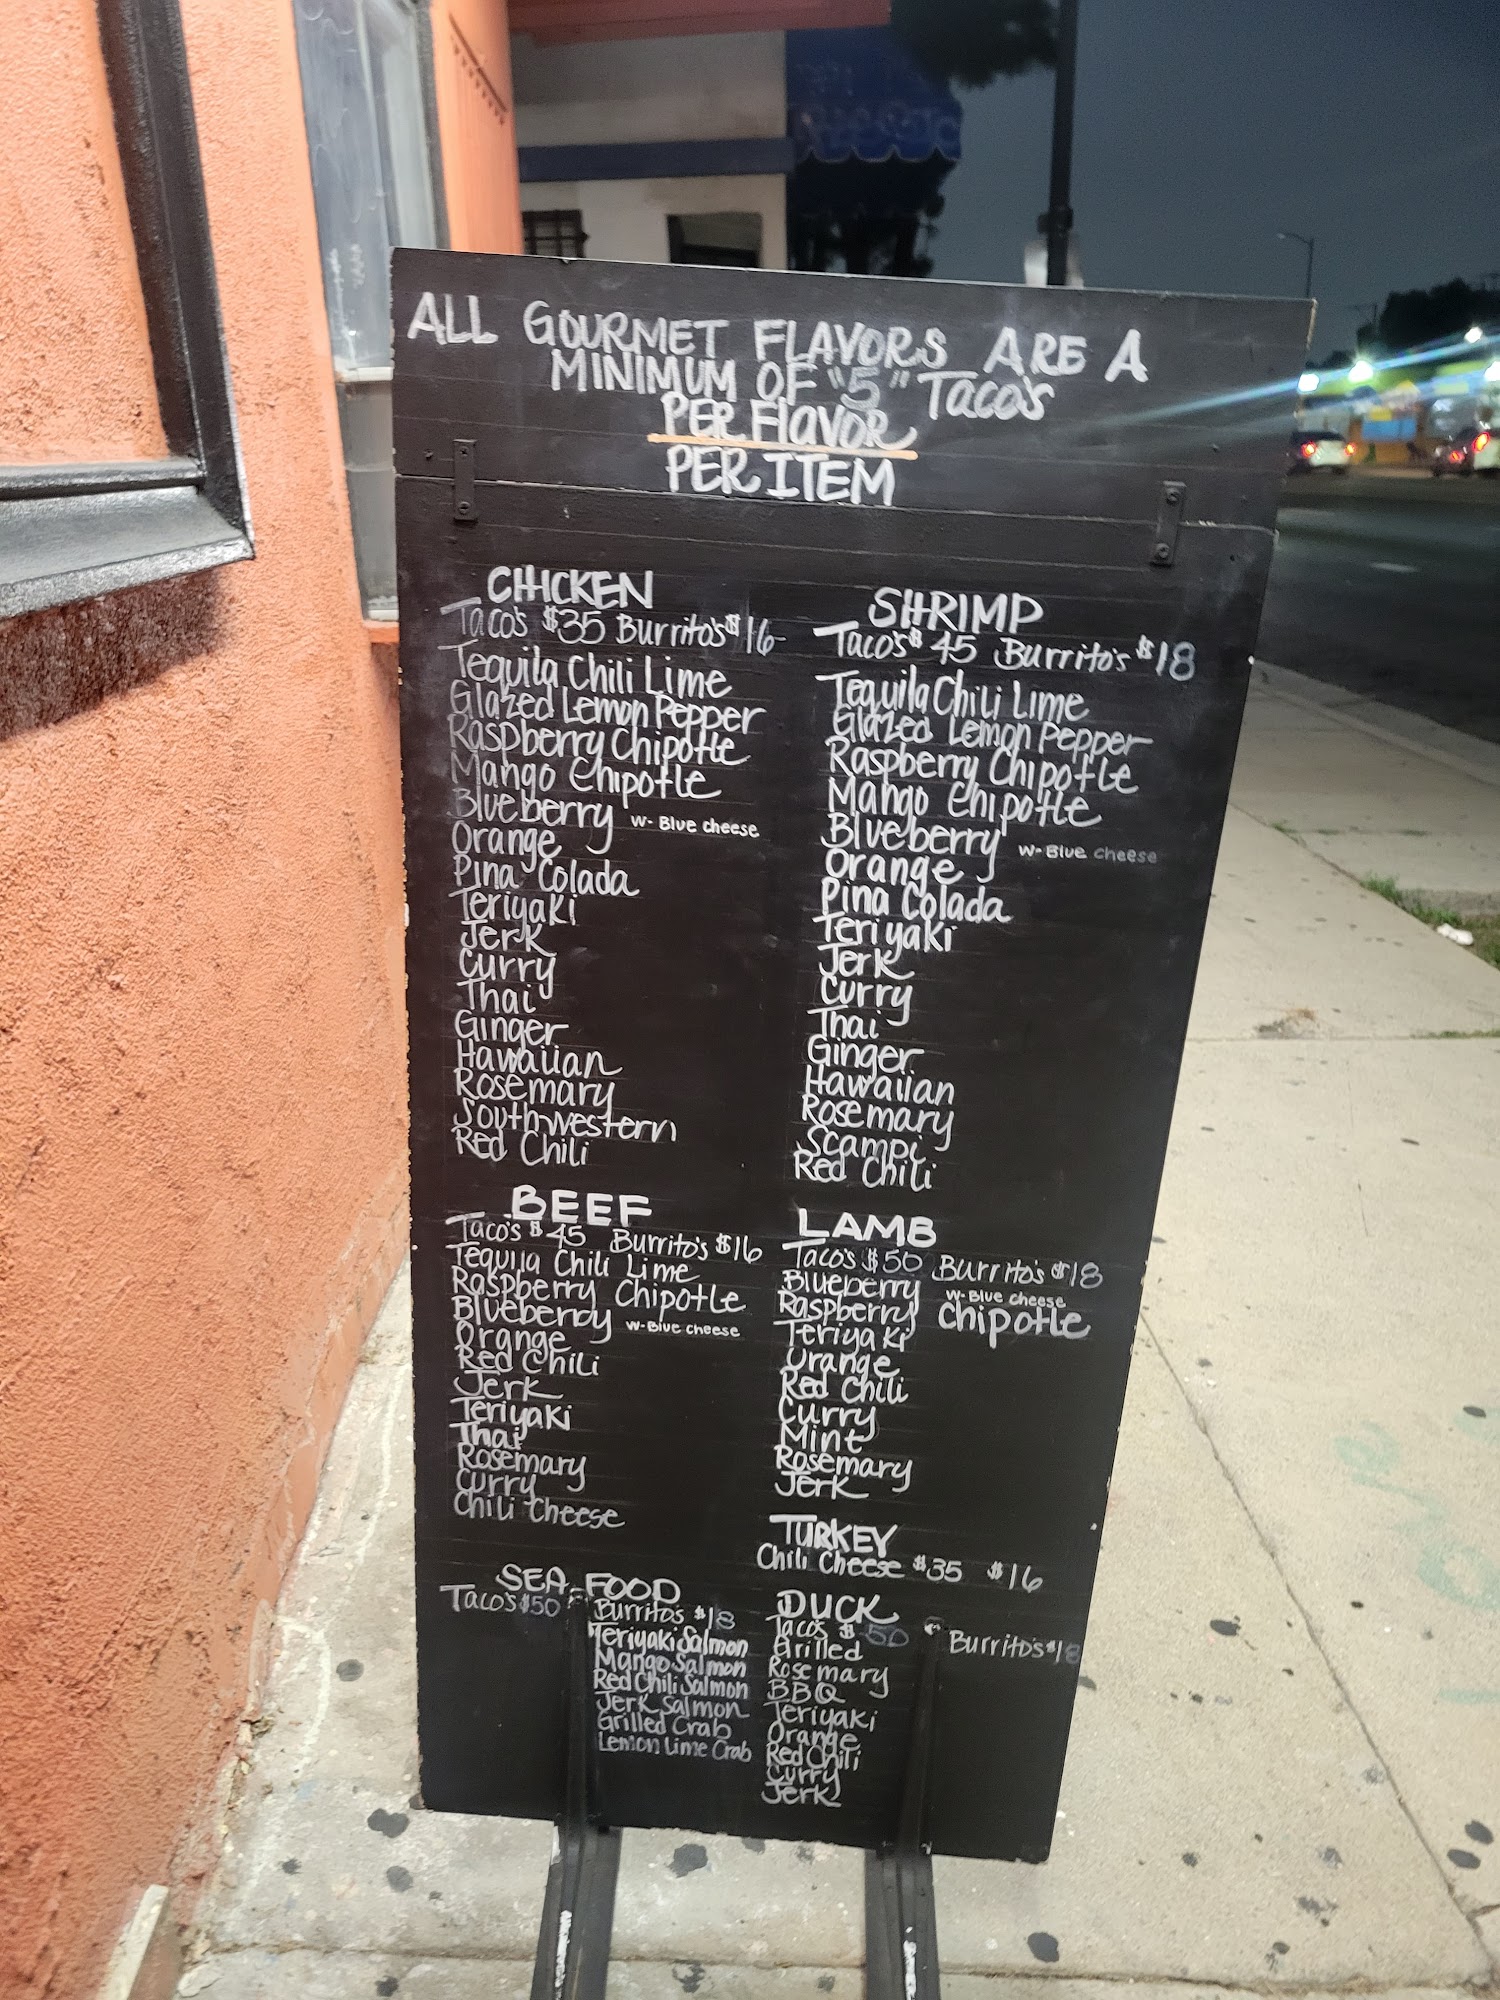 ALL GOURMET FLAVORS ARE A
MINIMUM OF "5" Taco's
PER FlavOR
PER ITEM
CHICKEN
Taco's $35 Burrito's $16
Tequila Chili Lime
Glazed Lemon Pepper
Raspberry Chipotle
Mango Chipotle
Blueberry w- Blue cheese
Orange
Pina Colada
Teriyaki
Jerk
Curry
Thai
Ginger
Hawaiian
Rosemary
Southwestern
Red Chili
SHRIMP
Taco's $45 Burrito's $18
Tequila Chili Lime
Glazed Lemon Pepper
Raspberry Chipotle
Mango Chipotle
Blueberry w- Blue cheese
Orange
Pina Colada
Teriyaki
Jerk
Curry
Thai
Ginger
Hawaiian
Rosemary
Scampi
Red Chili
BEEF
Taco's $45 Burrito's $16
Tequila Chili Lime
Raspberry Chipotle
Blueberry w- Blue cheese
Orange
Red Chili
Jerk
Teriyaki
Thai
Rosemary
Curry
Chili Cheese
LAMB
Taco's $50 Burrito's $18
Blueberry w- Blue cheese
Raspberry Chipotle
Teriyaki
Orange
Red Chili
Curry
Mint
Rosemary
Jerk
TURKEY
Chili Cheese $35 $16
SEA FOOD
Taco's $50 Burrito's $18
Teriyaki Salmon
Mango Salmon
Red Chili Salmon
Jerk Salmon
Grilled Crab
Lemon Lime Crab
DUCK
Taco's $50 Burrito's $18
Grilled
Rosemary
BBQ
Teriyaki
Orange
Red Chili
Curry
Jerk